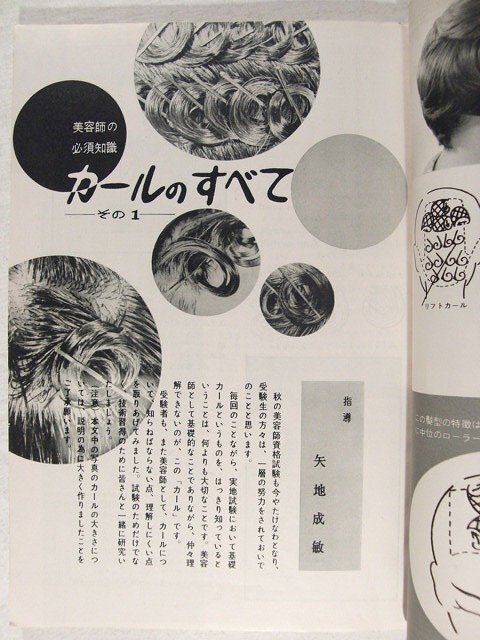 美容師の
必須知識
カールのすべて
その1
指導　矢地成敏
秋の美容師資格試験も今やたけなわとなり、
受験生の方々は、一層の努力をされておいで
のことと思います。
毎回のことながら、実地試験において基礎
カールというものを、はっきり知っていると
いうことは、何よりも大切なことです。美容
師として基礎的なことでありながら、仲々理
解できないのが、この「カール」です。
受験者も、また美容師として、カールにつ
いて、知らねばならない点、理解しにくい点
を取りあげてみました。試験のためだけでな
く、技術習得のために皆さんと一緒に研究い
たしましょう。
（注意）本文中の写真のカールの大きさにつ
いては、説明の為に大きく作りましたことを
ご了承願います。
リフトカール
この髪型の特徴は
に中位のローラー